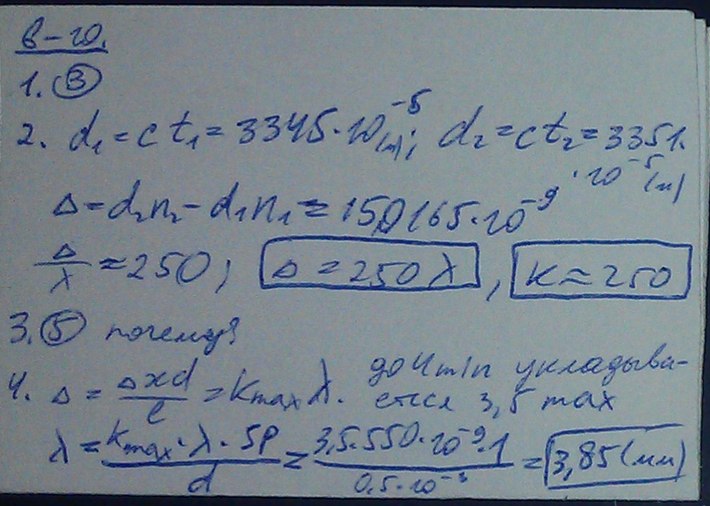 в-20.
1. ③
2. d₁ = ct₁ = 3345·10⁻⁵(м); d₂ = ct₂ = 3351·
·10⁻⁵(м)
Δ = d₂n₂ - d₁n₁ = 150165·10⁻⁹
Δ/λ ≈ 250; Δ = 250λ, k ≈ 250
3. ⑤ почему?
4. Δ = Δxd/l = kmax λ. до 4 min укладыва-
ется 3,5 max
λ = kmax·λ·SP/d = 3,5·550·10⁻⁹·1/0,5·10⁻³ = 3,85 (мм)